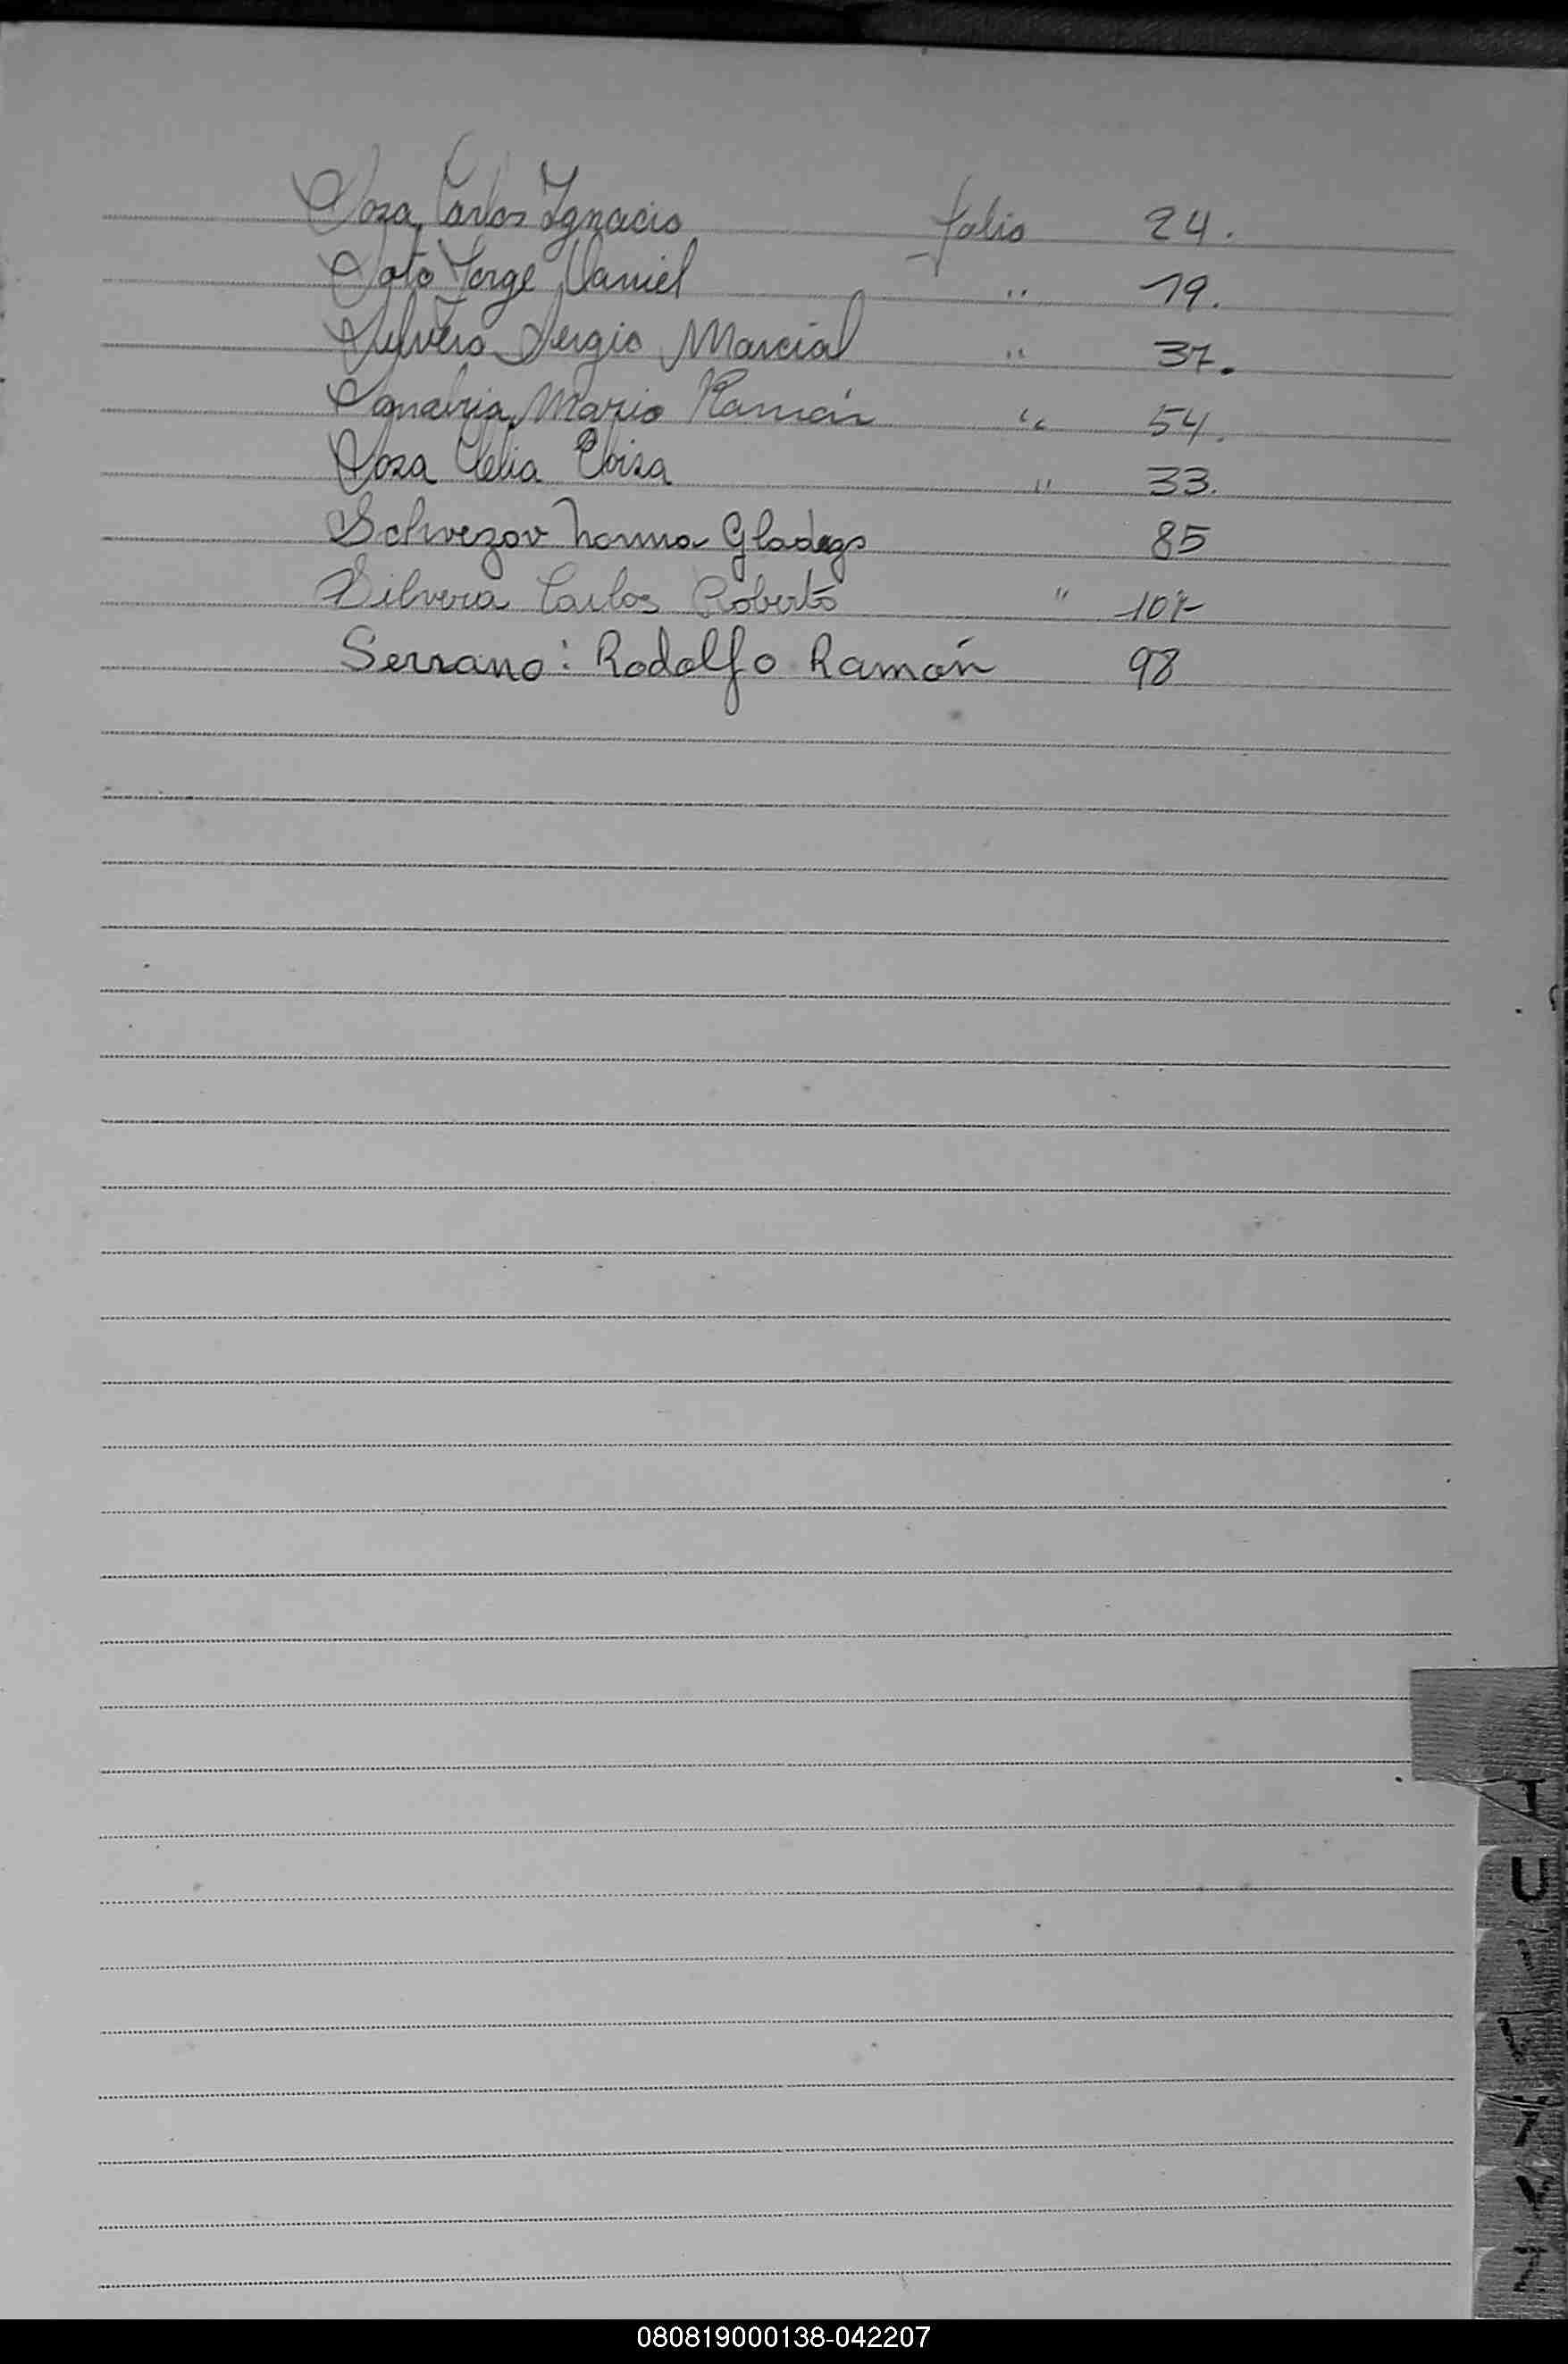 Sosa, Carlos Ignacio folio 24.
Soto Jorge Daniel " 19.
Sylvero Sergio Marcial " 37.
Sanabria, Mario Ramón " 54.
Sosa Clelia Eloisa " 33.
Schvezov Norma Gladys 85
Silvera Carlos Roberto "
Serrano: Rodolfo Ramón 98
T
U
080819000138-042207